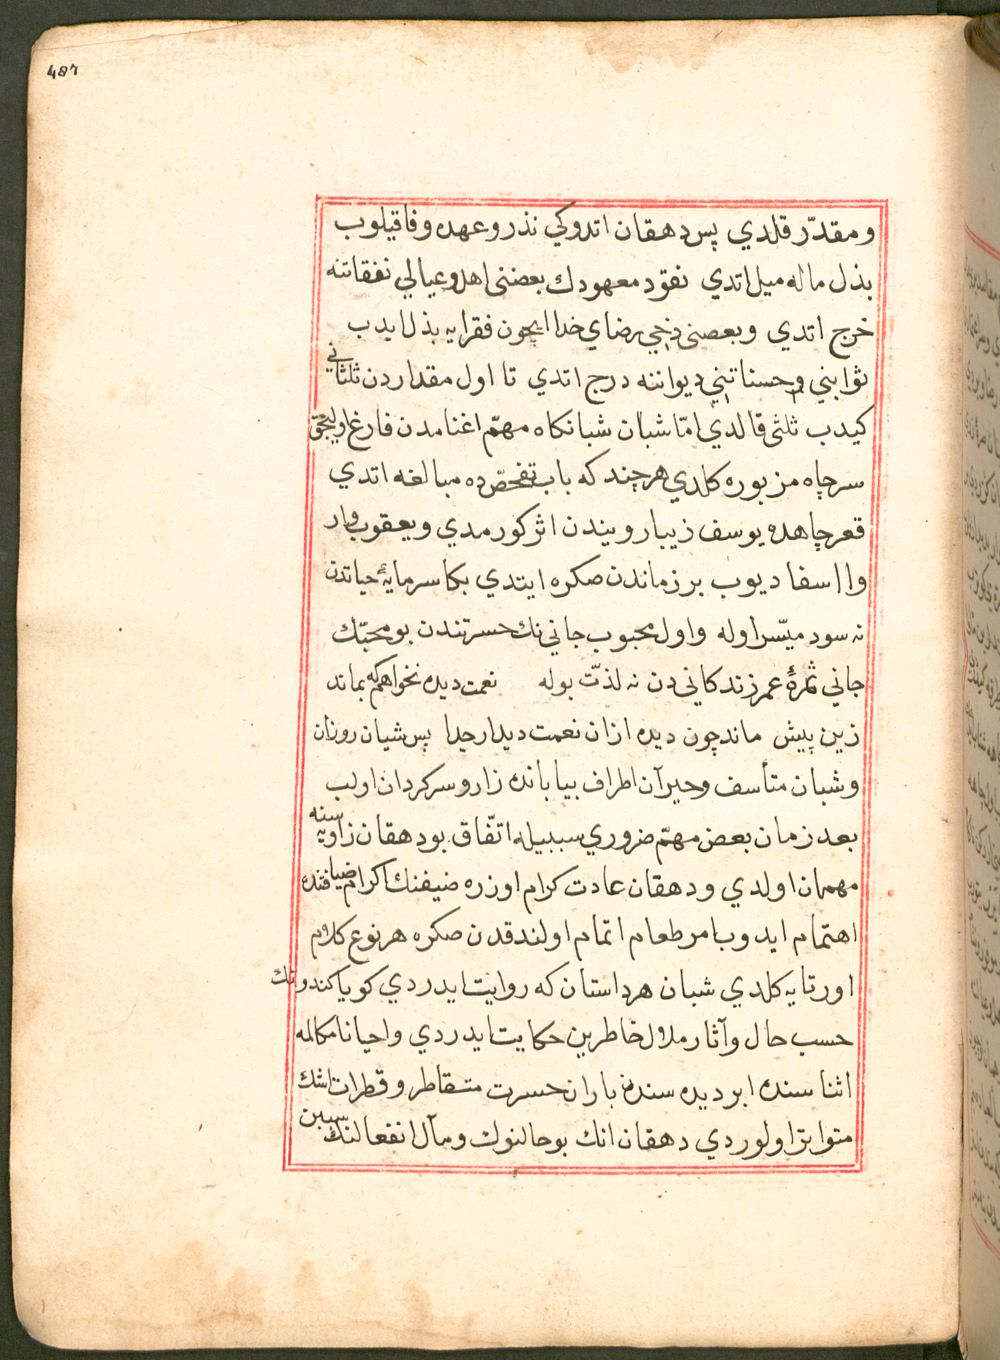 487
ومقدّر قلدي پس دهقان اتدوكي نذر وعهده وفا قيلوب
بذل ماله ميل اتدي نقود معهودك بعضنى اهل وعيالي نفقاتنه
خرج اتدي وبعضنى دخي رضاي خدا ايچون فقرايه بذل ايدب
ثوابني وحسناتني ديواننه درج اتدي تا اول مقداردن ثلثاني
كيدب ثلثى قالدي امّا شبان شبانكاه مهمّ اغنامدن فارغ اوليجق
سرچاه مزبوره كلدي هرچند كه باب تفحّصده مبالغه اتدي
قعر چاهده يوسف زيبا رويندن اثر كورمدي ويعقوب وار
وا اسفا ديوب بر زماندن صكره ايتدي بكا سرمايۀ حياتدن
نه سود ميسّر اوله واول محبوب جاني نك حسرتندن بو محبّك
جاني ثمرۀ عمر زندكاني دن نه لذّت بوله نعمت ديده نخواهم كه بماند
زين پيش ماند چون ديده ازان نعمت ديدار جدا پس شبان روزان
وشبان متأسف وحيرآن اطراف بياباننده زار وسركردان اولب
بعد زمان بعض مهمّ ضروري سببيله اتّفاق بو دهقان زاويه سنه
مهمان اولدي ودهقان عادت كرام اوزره ضيفنك اكرام ضيافتنده
اهتمام ايدوب امر طعام اتمام اولندقدن صكره هر نوع كلام
اورتايه كلدي شبان هر داستان كه روايت ايدردي كويا كندونك
حسب حال وآثار ملال خاطرين حكايت ايدردي واحيانا مكالمه
اثنا سنده ابر ديده سندن باران حسرت متقاطر وقطرات اشك
متواتر اولوردي دهقان انك بو حالنوك ومآل انفعالنك سببن